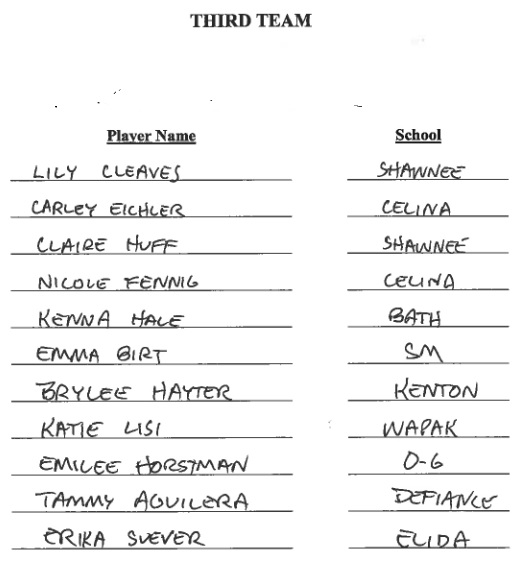 THIRD TEAM
Player Name School
LILY CLEAVES SHAWNEE
CARLEY EICHLER CELINA
CLAIRE HUFF SHAWNEE
NICOLE FENNIG CELINA
KENNA HALE BATH
EMMA BIRT SM
BRYLEE HAYTER KENTON
KATIE LISI WAPAK
EMILEE HORSTMAN O-G
TAMMY AGUILERA DEFIANCE
ERIKA SUEVER ELIDA